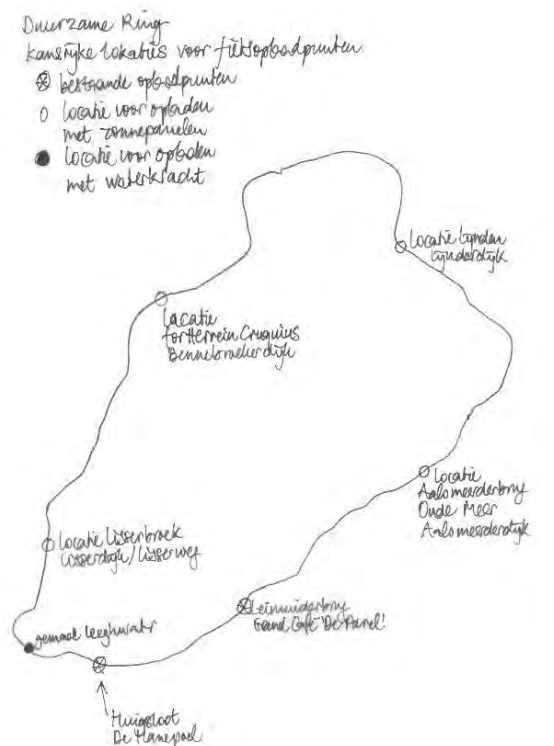 Duurzame Ring
kansrijke lokaties voor fietsoplaadpunten
bestaande oplaadpunten
locatie voor opladen
met zonnepanelen
locatie voor opladen
met waterkracht
Locatie Lijnden
Lijnderdijk
Locatie
fortterrein Cruquius
Bennebroekerdijk
Locatie
Aalsmeerderbrug
Oude Meer
Aalsmeerderdijk
Locatie Lisserbroek
Lisserdijk/Lisserweg
Leimuiderbrug
Grand Café 'De Parel'
gemaal Leeghwater
Huigsloot
De Hanepoel